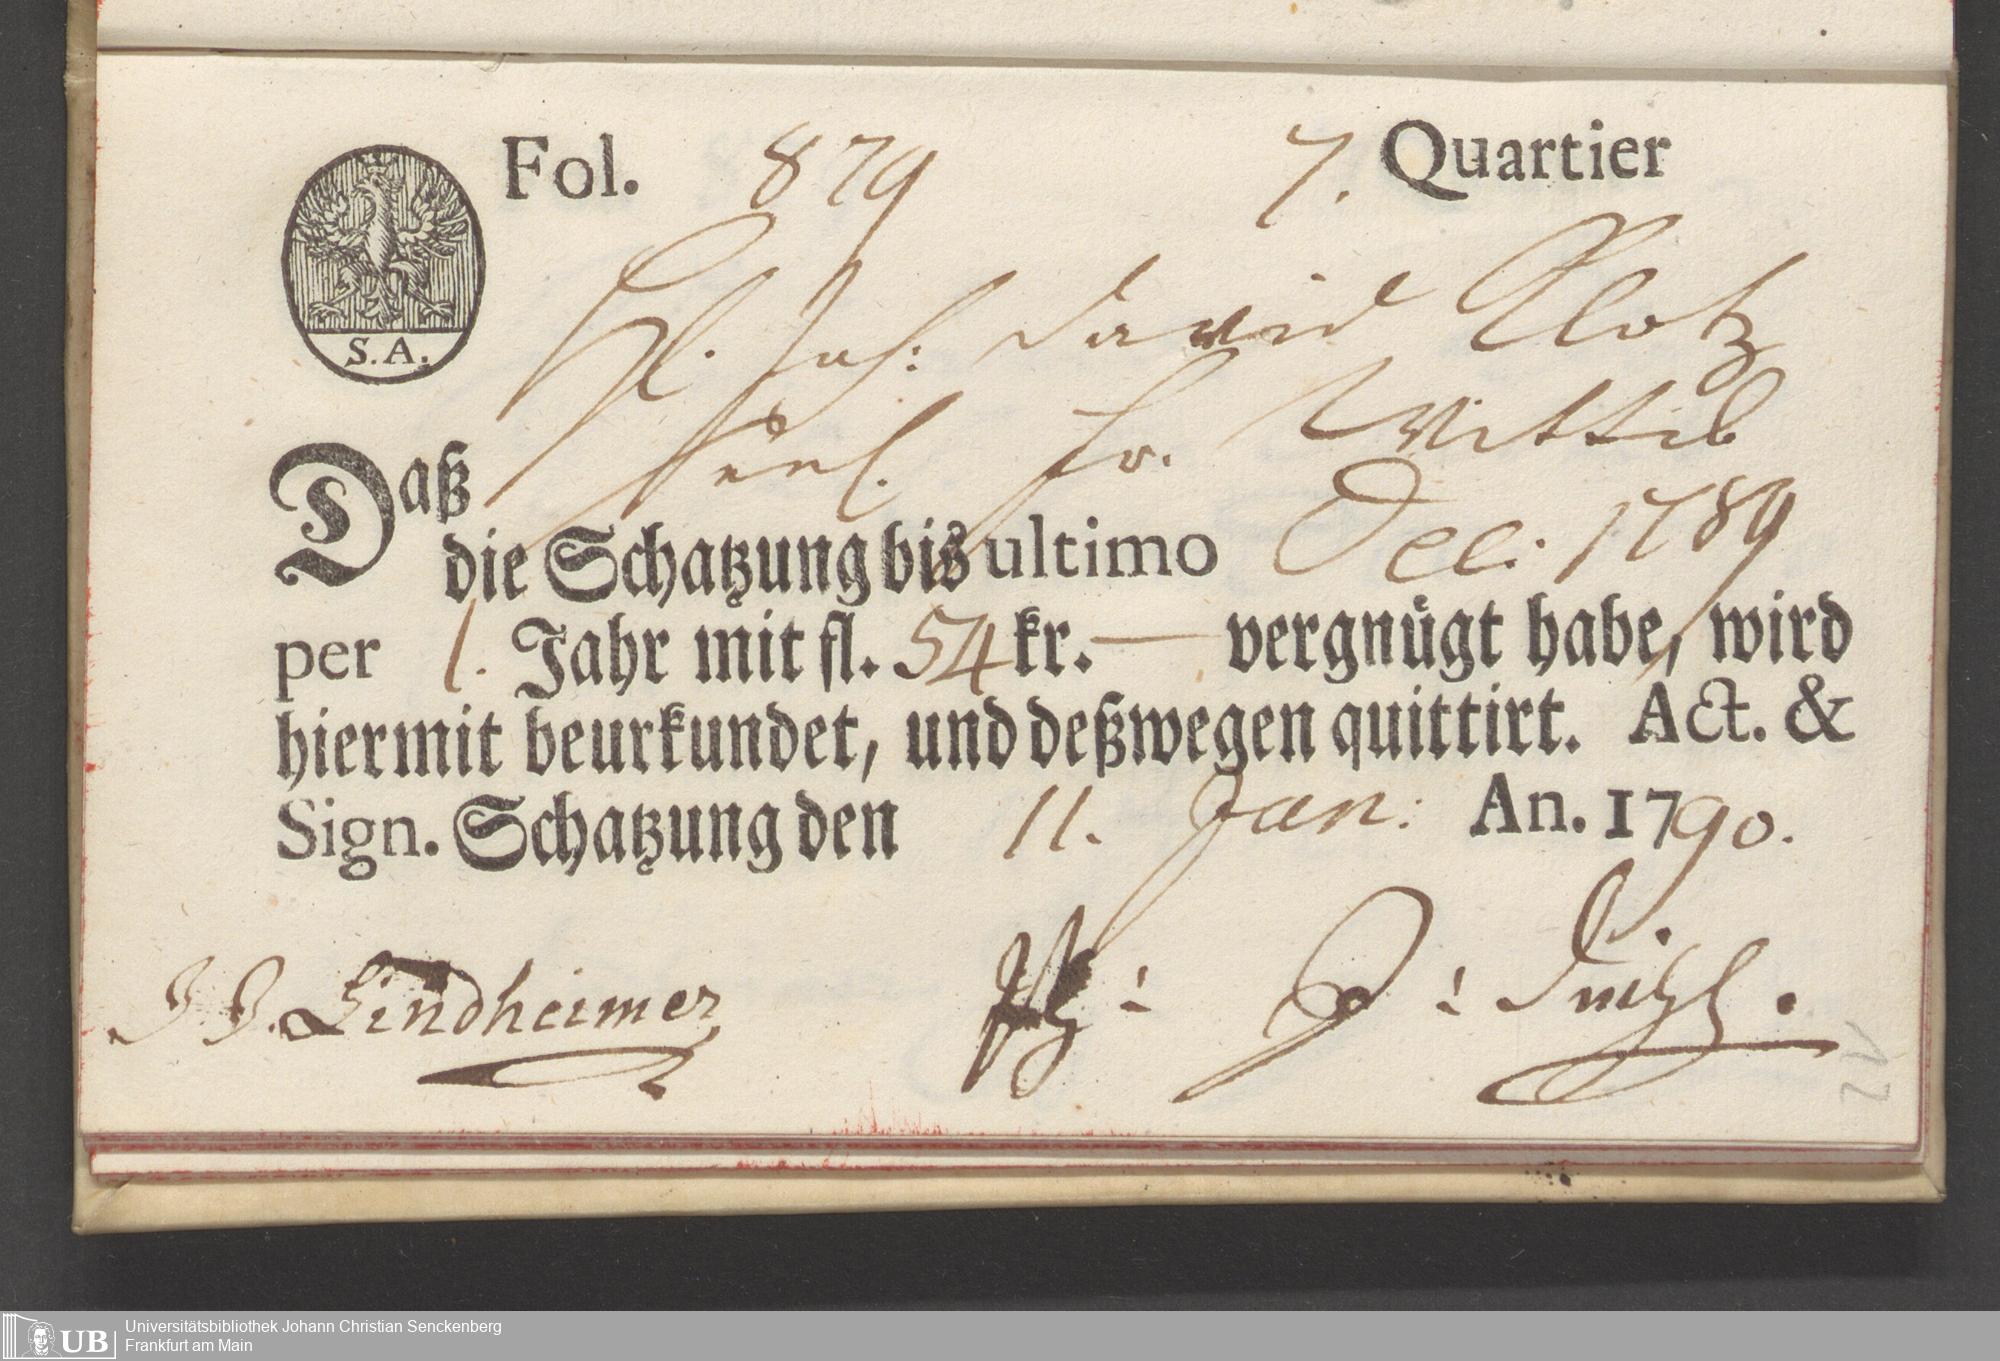 Fol. 879 7. Quartier
S. A.
H. Joh: David Klotz
Daß seel. Fr. Wittib
die Schatzung bis ultimo Dec: 1789
per 1. Jahr mit fl. 54 kr. — vergnügt habe, wird
hiermit beurkundet, und deßwegen quittirt. Act. &
Sign. Schatzung den 11. Jan: An. 1790.
J J. Lindheimer
UB
Universitätsbibliothek Johann Christian Senckenberg
Frankfurt am Main